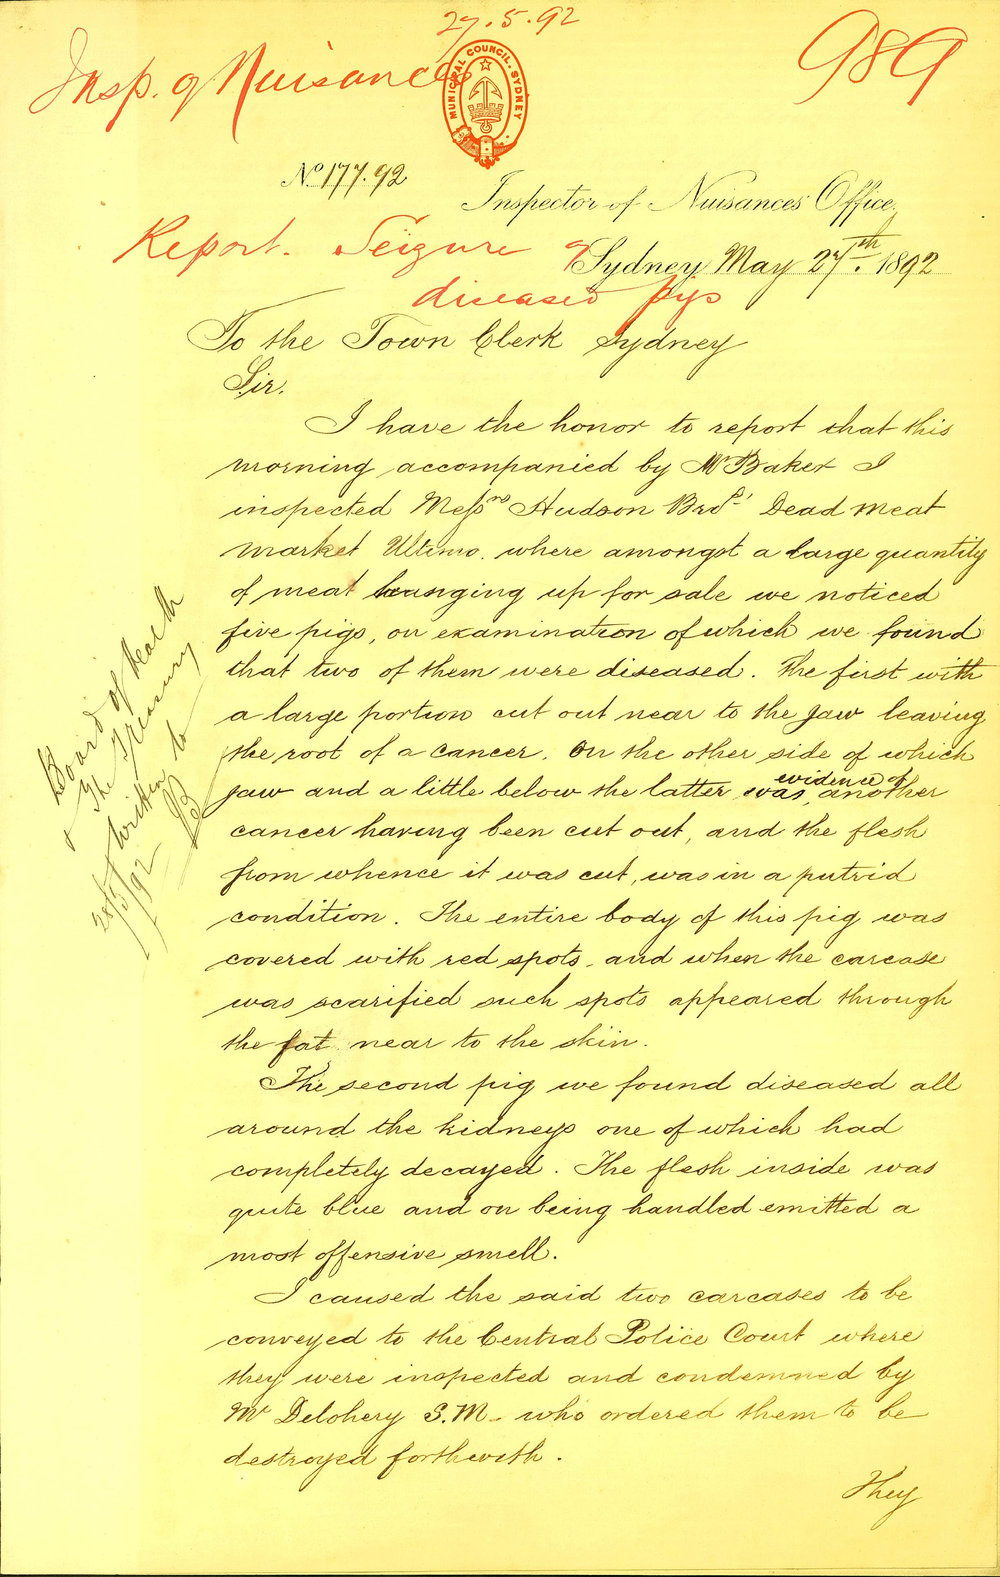 27.5.92
Insp. of Nuisances
989
MUNICIPAL COUNCIL. SYDNEY
No 177.92
Inspector of Nuisances Office,
Report. Seizure of
Sydney May 27th. 1892
diseased pigs
To the Town Clerk Sydney
Sir.
I have the honor to report that this
morning accompanied by Mr Baker I
inspected Messrs Hudson Bros' Dead meat
market Ultimo. where amongst a large quantity
of meat hanging up for sale we noticed
five pigs, on examination of which we found
that two of them were diseased. The first with
a large portion cut out near to the jaw leaving
the root of a cancer. On the other side of which
jaw and a little below the latter was evidence of another
cancer having been cut out, and the flesh
from whence it was cut, was in a putrid
condition. The entire body of this pig was
covered with red spots. and when the carcase
was scarified such spots appeared through
the fat near to the skin.
The second pig we found diseased all
around the kidneys one of which had
completely decayed. The flesh inside was
quite blue and on being handled emitted a
most offensive smell.
I caused the said two carcases to be
conveyed to the Central Police Court where
they were inspected and condemned by
Mr Delohery S.M. who ordered them to be
destroyed forthwith.
They
Board of Health
& The Treasury
written to
28/5/92